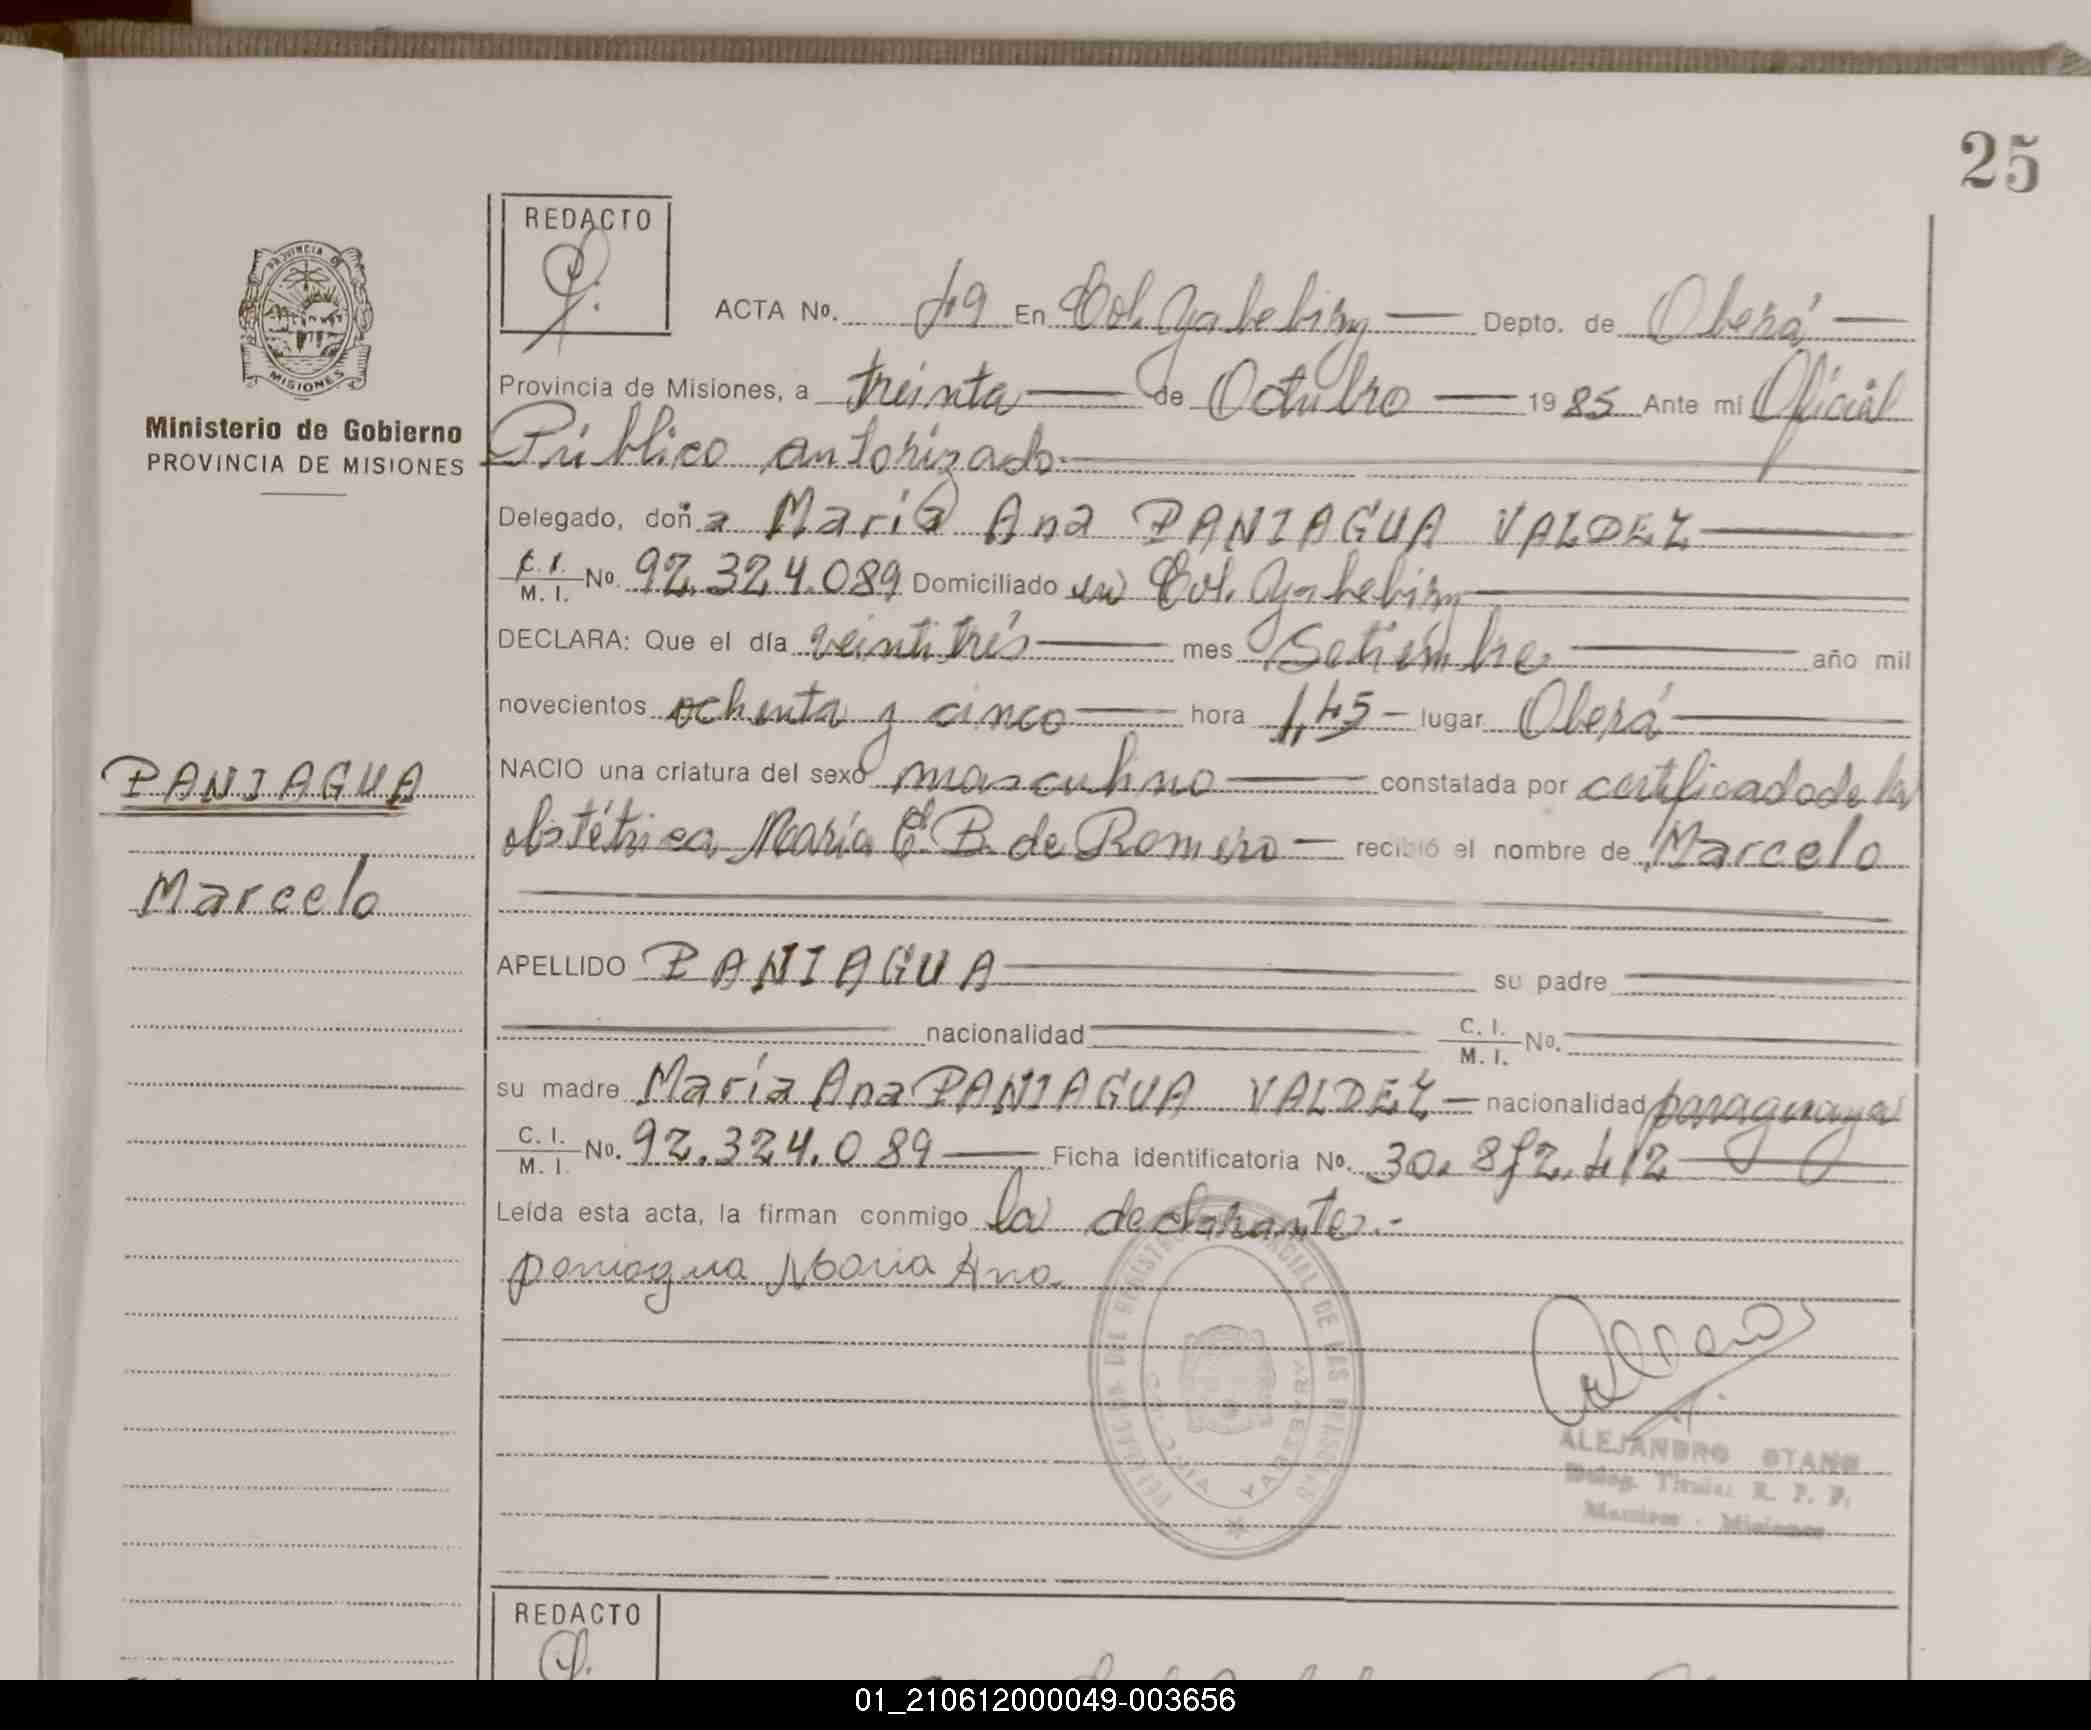 25
REDACTO
ACTA No. 49 En Col. Yabebiry Depto. de Oberá
Provincia de Misiones, a treinta de Octubre 1985 Ante mi Oficial
Público autorizado.
PROVINCIA DE
MISIONES
Ministerio de Gobierno
PROVINCIA DE MISIONES
Delegado, doña María Ana PANIAGUA VALDEZ
C. I.
M. I. No. 92.324.089 Domiciliado en Col. Yabebiry
DECLARA: Que el día veintitrés mes Setiembre año mil
novecientos ochenta y cinco hora 1,45 - lugar Oberá
NACIO una criatura del sexo masculino constatada por certificado de la
obstétrica María E. B. de Romero - recibió el nombre de Marcelo
PANIAGUA
Marcelo
APELLIDO PANIAGUA su padre
nacionalidad C. I.
M. I. No.
su madre María Ana PANIAGUA VALDEZ - nacionalidad paraguaya
C. I.
M. I. No. 92.324.089 Ficha identificatoria No. 30.872.412
Leída esta acta, la firman conmigo la declarante.-
paniagua Maria Ana
COLONIA YABEBIRY
ALEJANDRO STANG
Deleg. Titular R. P. P.
Misiones
REDACTO
01_210612000049-003656